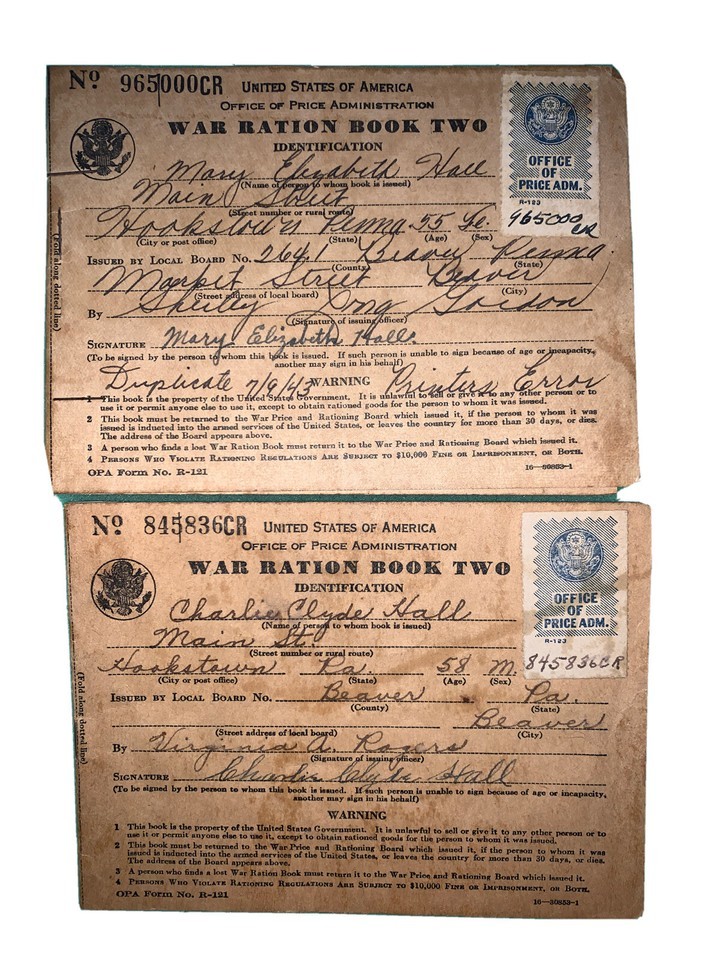 Nº 965000CR UNITED STATES OF AMERICA
OFFICE OF PRICE ADMINISTRATION
WAR RATION BOOK TWO
IDENTIFICATION
OFFICE
OF
PRICE ADM.
R-123
965000
CR
Mary Elizabeth Hall
(Name of person to whom book is issued)
Main Street
(Street number or rural route)
Hookstown Penna. 55 Fe.
(City or post office) (State) (Age) (Sex)
ISSUED BY LOCAL BOARD NO. 264.1 Beaver Penna.
(County) (State)
Market Street Beaver
(Street address of local board) (City)
By Shirley Gordon
(Signature of issuing officer)
SIGNATURE Mary Elizabeth Hall.
(To be signed by the person to whom this book is issued. If such person is unable to sign because of age or incapacity,
another may sign in his behalf)
Duplicate 7/9/43 WARNING Printers Error
1 This book is the property of the United States Government. It is unlawful to sell or give it to any other person or to
use it or permit anyone else to use it, except to obtain rationed goods for the person to whom it was issued.
2 This book must be returned to the War Price and Rationing Board which issued it, if the person to whom it was
issued is inducted into the armed services of the United States, or leaves the country for more than 30 days, or dies.
The address of the Board appears above.
3 A person who finds a lost War Ration Book must return it to the War Price and Rationing Board which issued it.
4 PERSONS WHO VIOLATE RATIONING REGULATIONS ARE SUBJECT TO $10,000 FINE OR IMPRISONMENT, OR BOTH.
OPA FORM NO. R-121 16—30853-1
(Fold along dotted line)
Nº 845836CR UNITED STATES OF AMERICA
OFFICE OF PRICE ADMINISTRATION
WAR RATION BOOK TWO
IDENTIFICATION
OFFICE
OF
PRICE ADM.
R-123
845836CR
Charlie Clyde Hall
(Name of person to whom book is issued)
Main St.
(Street number or rural route)
Hookstown Pa. 58 M.
(City or post office) (State) (Age) (Sex)
ISSUED BY LOCAL BOARD NO. Beaver Pa.
(County) (State)
Beaver
(Street address of local board) (City)
By Virginia A. Rogers
(Signature of issuing officer)
SIGNATURE Charlie Clyde Hall
(To be signed by the person to whom this book is issued. If such person is unable to sign because of age or incapacity,
another may sign in his behalf)
WARNING
1 This book is the property of the United States Government. It is unlawful to sell or give it to any other person or to
use it or permit anyone else to use it, except to obtain rationed goods for the person to whom it was issued.
2 This book must be returned to the War Price and Rationing Board which issued it, if the person to whom it was
issued is inducted into the armed services of the United States, or leaves the country for more than 30 days, or dies.
The address of the Board appears above.
3 A person who finds a lost War Ration Book must return it to the War Price and Rationing Board which issued it.
4 PERSONS WHO VIOLATE RATIONING REGULATIONS ARE SUBJECT TO $10,000 FINE OR IMPRISONMENT, OR BOTH.
OPA FORM NO. R-121 16—30853-1
(Fold along dotted line)